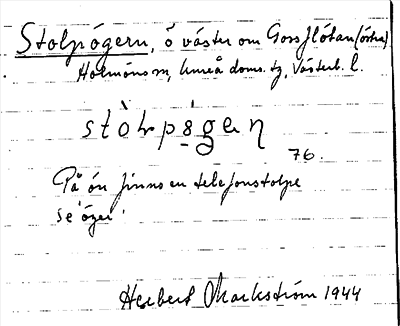 Stolpögern, ö väster om Gossflötan (östra)
Holmöns sn, Umeå doms. tg, Västerb. l.
stòlpȣ́gen
76.
På ön finns en telefonstolpe
Herbert Markström 1944